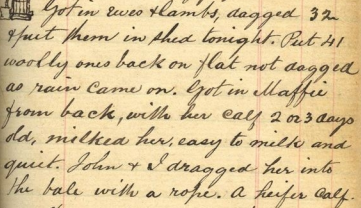 Got in ewes & lambs, dagged 32
& put them in shed tonight. Put 41
woolly ones back on flat not dagged
as rain came on. Got in Maffie
from back, with her calf 2 or 3 days
old, milked her, easy to milk and
quiet. John & I dragged her into
the bale with a rope. A heifer calf